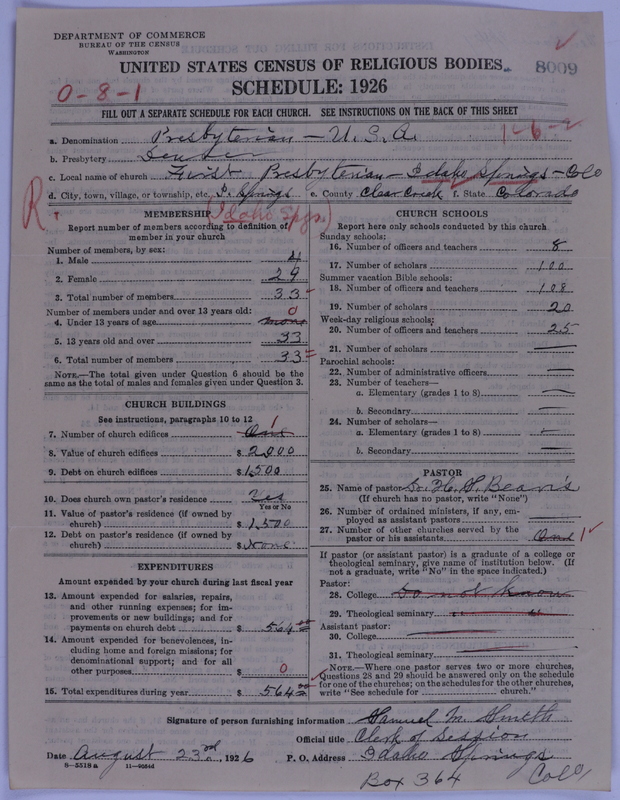 DEPARTMENT OF COMMERCE
BUREAU OF THE CENSUS
WASHINGTON
UNITED STATES CENSUS OF RELIGIOUS BODIES
8009
SCHEDULE: 1926
0-8-1
FILL OUT A SEPARATE SCHEDULE FOR EACH CHURCH. SEE INSTRUCTIONS ON THE BACK OF THIS SHEET
a. Denomination Presbyterian - U.S.A. 1-6-2
b. Presbytery Denver
c. Local name of church First Presbyterian - Idaho Springs - Colo
d. City, town, village, or township, etc. I. Springs e. County Clear Creek f. State Colorado
R.
(Idaho Spgs.)
MEMBERSHIP
Report number of members according to definition of
member in your church
Number of members, by sex:
1. Male 4
2. Female 29
3. Total number of members 33
Number of members under and over 13 years old:
4. Under 13 years of age none 0
5. 13 years old and over 33
6. Total number of members 33
NOTE.—The total given under Question 6 should be
same as the total of males and females given under Question 3.
CHURCH BUILDINGS
See instructions, paragraphs 10 to 12
7. Number of church edifices One 1
8. Value of church edifices $ 2000
9. Debt on church edifices $ 1500
10. Does church own pastor's residence Yes
Yes or No
11. Value of pastor's residence (if owned by
church) $ 1,500
12. Debt on pastor's residence (if owned by
church) $ None
EXPENDITURES
Amount expended by your church during last fiscal year
13. Amount expended for salaries, repairs,
and other running expenses; for im-
provements or new buildings; and for
payments on church debt $ 564.00
14. Amount expended for benevolences, in-
cluding home and foreign missions; for
denominational support; and for all
other purposes $ 0
15. Total expenditures during year $ 564.00
CHURCH SCHOOLS
Report here only schools conducted by this church
Sunday schools:
16. Number of officers and teachers 8
17. Number of scholars 100
Summer vacation Bible schools:
18. Number of officers and teachers 108
19. Number of scholars 20
Week-day religious schools:
20. Number of officers and teachers 25
21. Number of scholars —
Parochial schools:
22. Number of administrative officers —
23. Number of teachers—
a. Elementary (grades 1 to 8) —
b. Secondary —
24. Number of scholars—
a. Elementary (grades 1 to 8) —
b. Secondary —
PASTOR
25. Name of pastor
(If church has no pastor, write "None")
26. Number of ordained ministers, if any, em-
ployed as assistant pastors —
27. Number of other churches served by the
pastor or his assistants One 1
If pastor (or assistant pastor) is a graduate of a college or
theological seminary, give name of institution below. (If
not a graduate, write "No" in the space indicated.)
Pastor:
28. College Do not know
29. Theological seminary " "
Assistant pastor:
30. College
31. Theological seminary
NOTE.—Where one pastor serves two or more churches,
Questions 28 and 29 should be answered only on the schedule
for one of the churches; on the schedules for the other churches,
write "See schedule for church."
Signature of person furnishing information Samuel M. Smith
Official title Clerk of Session
Date August 23rd, 1926 P. O. Address Idaho Springs
8-5318 a
Box 364 Colo,